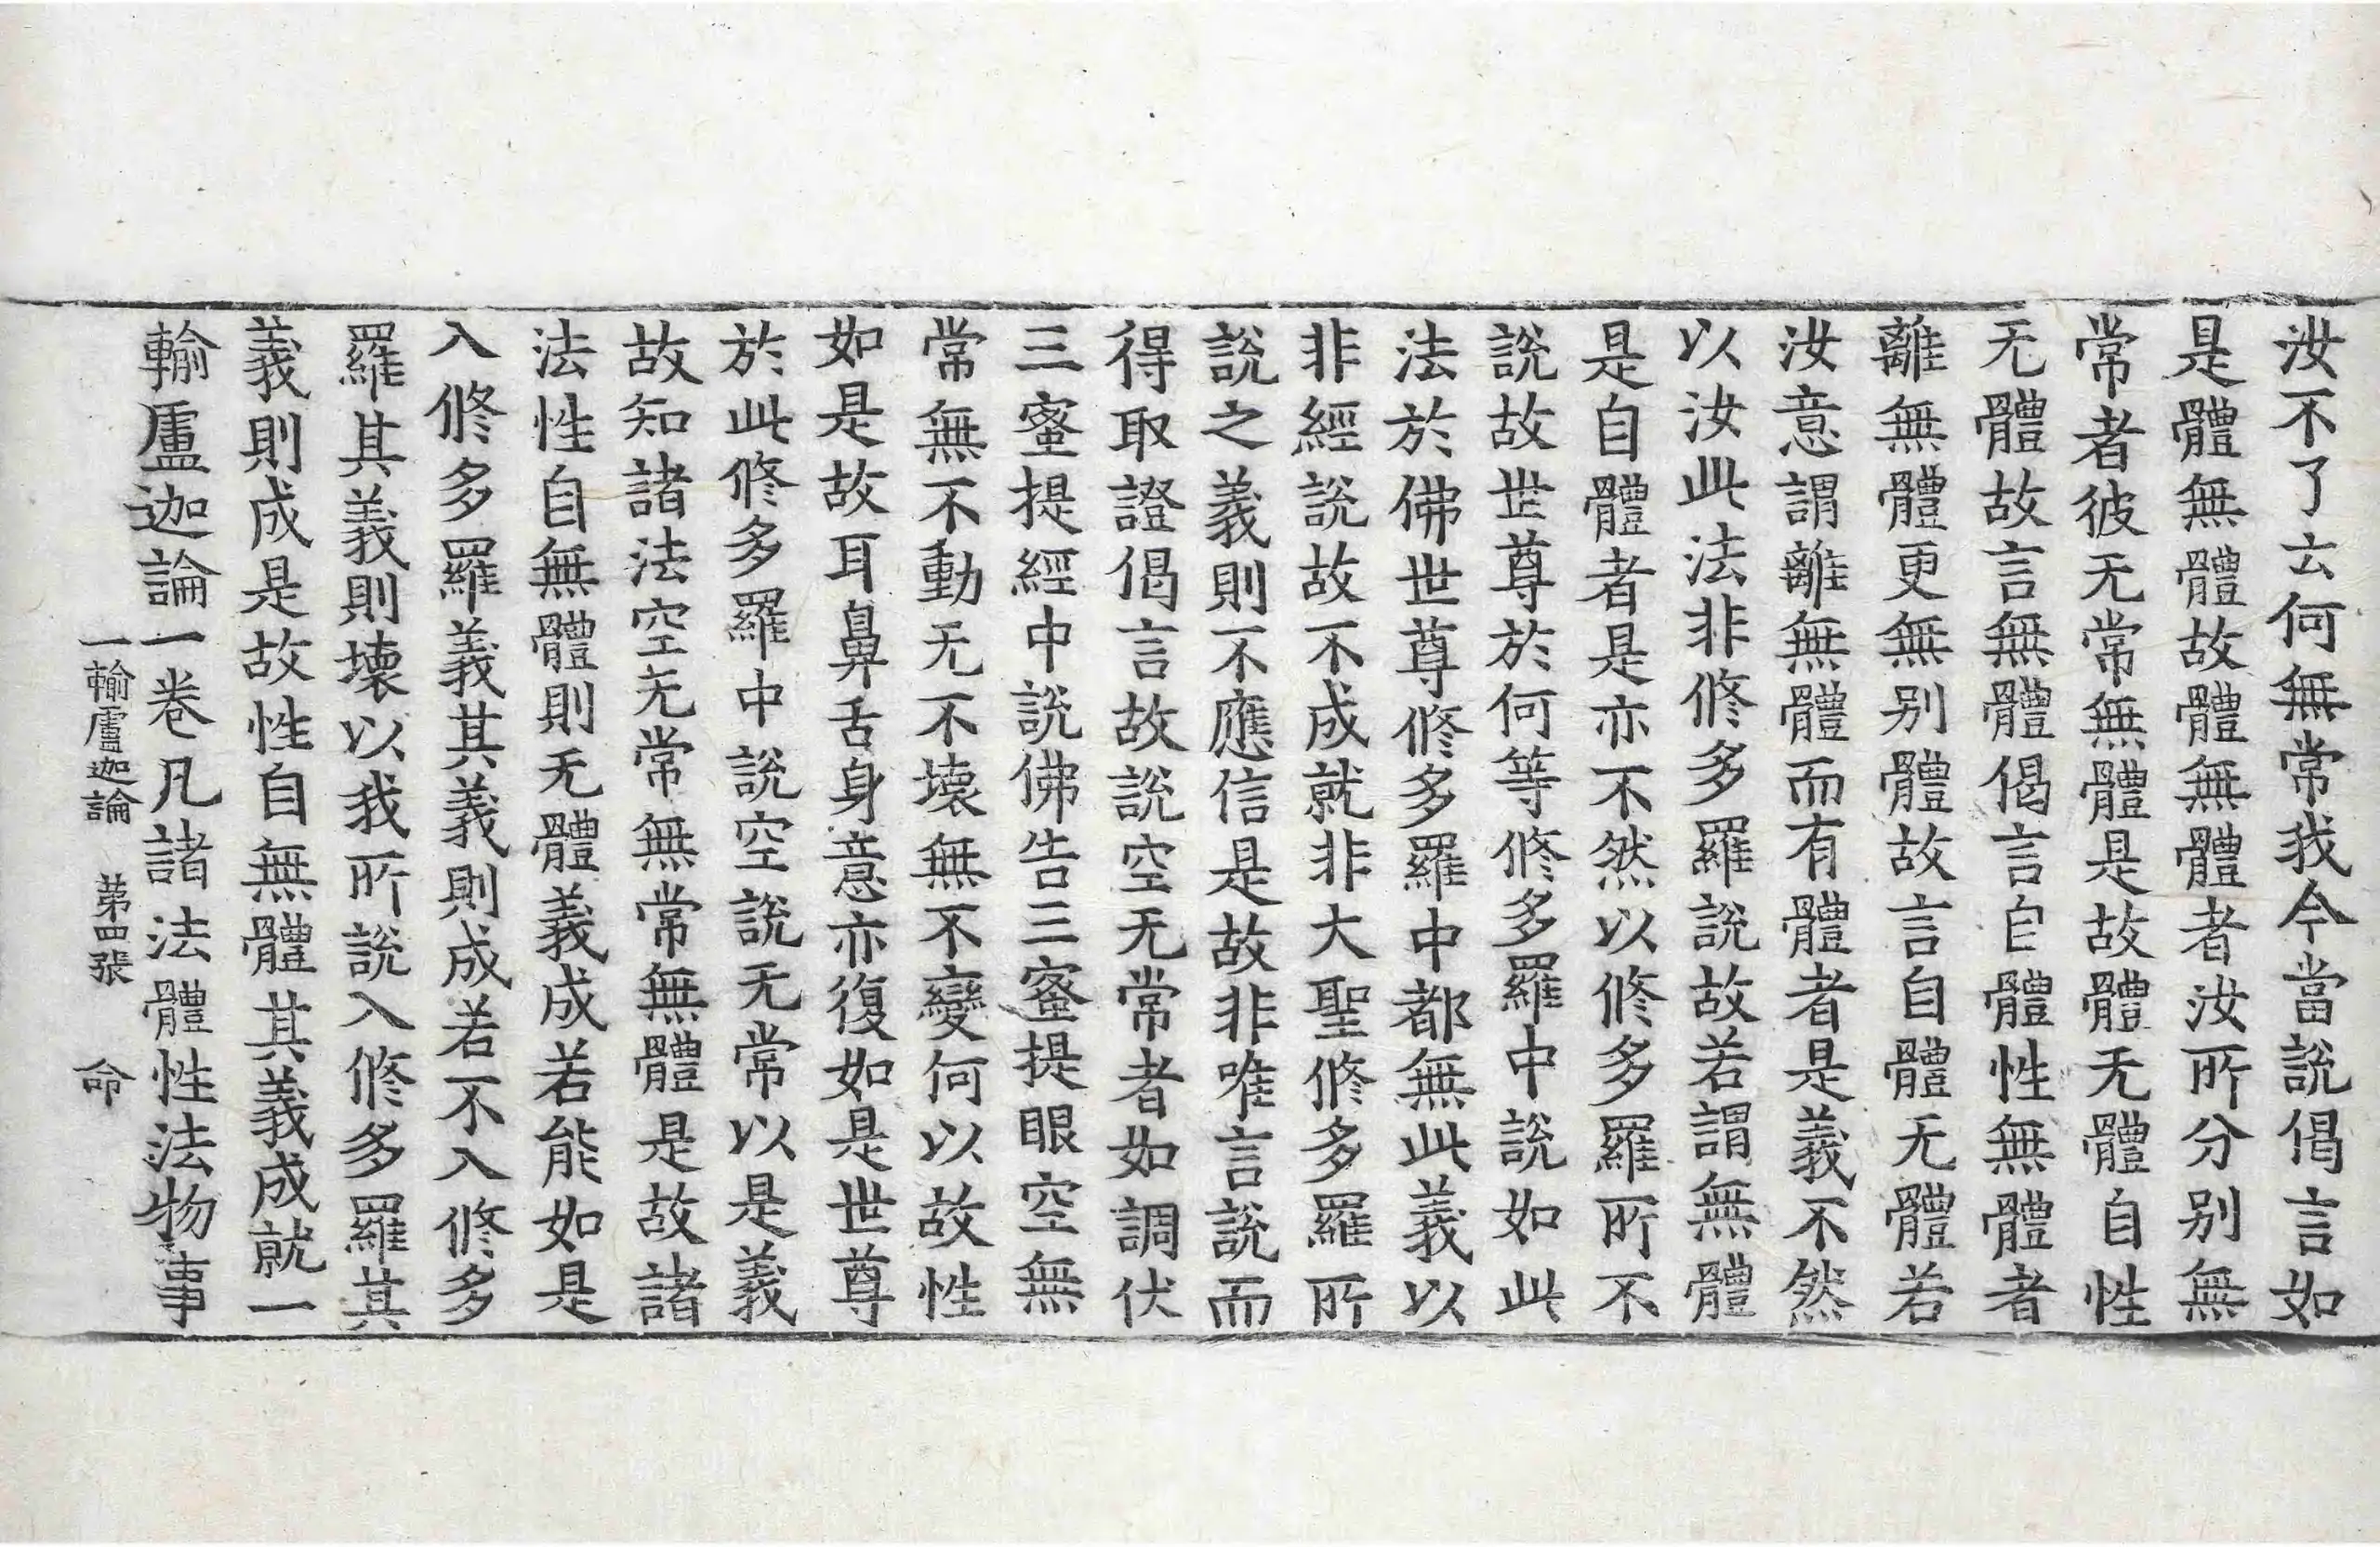 汝不了云何無常我今當說偈言如
是體無體故體無體者汝所分别無
常者彼无常無體是故體无體自性
无體故言無體偈言自體性無體者
離無體更無别體故言自體无體若
汝意謂離無體而有體者是義不然
以汝此法非修多羅說故若謂無體
是自體者是亦不然以修多羅所不
說故世尊於何等修多羅中說如此
法於佛世尊修多羅中都無此義以
非經說故不成就非大聖修多羅所
說之義則不應信是故非唯言說而
得取證偈言故說空无常者如調伏
三蜜提經中說佛告三蜜提眼空無
常無不動无不壞無不變何以故性
如是故耳鼻舌身意亦復如是世尊
於此修多羅中說空說无常以是義
故知諸法空无常無常無體是故諸
法性自無體則无體義成若能如是
入修多羅義其義則成若不入修多
羅其義則壞以我所說入修多羅其
義則成是故性自無體其義成就一
輸盧迦論一卷凡諸法體性法物事
一輸盧迦論 苐四張 命